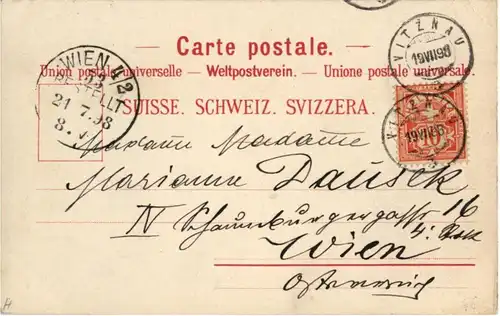 Carte postale.
Union postale universelle. — Weltpostverein. — Unione postale universale.
SUISSE. SCHWEIZ. SVIZZERA.
WIEN 4/2
BESTELLT
21 7.98
8. V.
VITZNAU
19 VII 98
VITZNAU
19 VII 98
10
Madame Madame
Marianne Dausek
IV Schaumburgergasse 16
Wien
Österreich